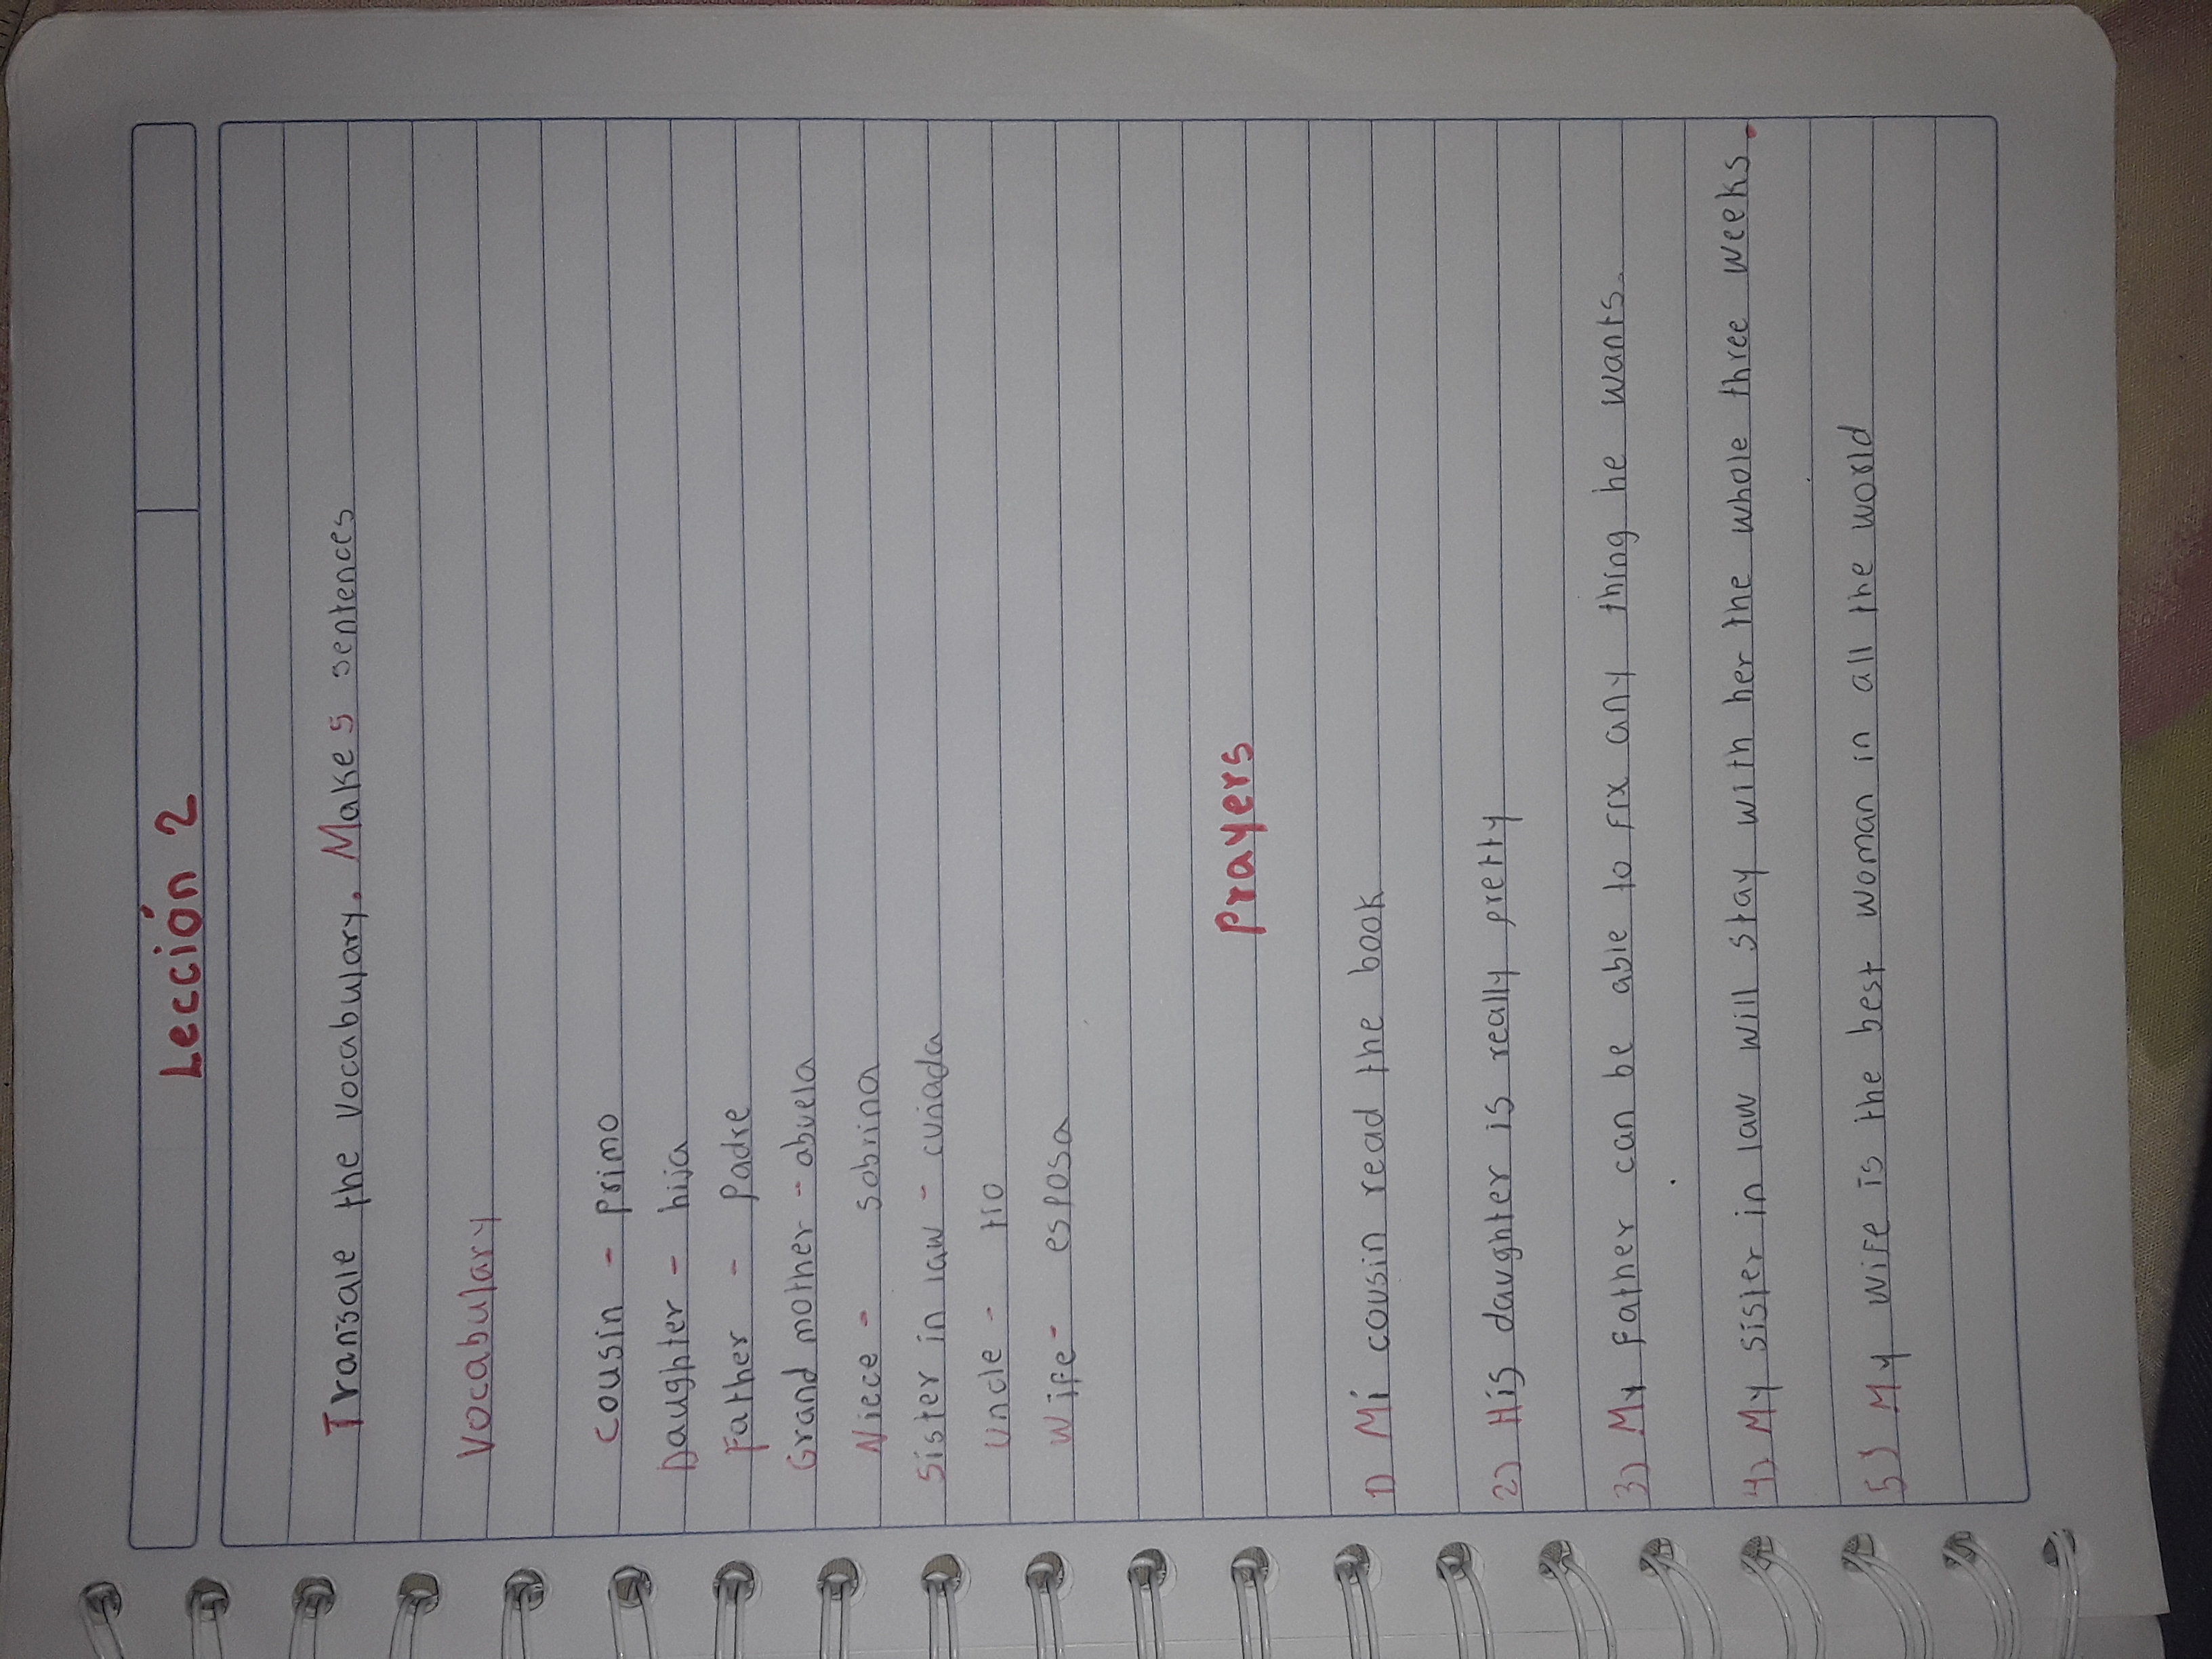 Lección 2
Transale the vocabulary. Make 5 sentences
Vocabulary
Cousin - primo
Daughter - hija
Father - Padre
Grand mother - abuela
Niece - sobrina
Sister in law - cuñada
Uncle - tio
Wife - esposa
Prayers
1) Mi cousin read the book
2) His daughter is really pretty
3) My father can be able to fix any thing he wants.
4) My sister in law will stay with her the whole three weeks.
5) My wife is the best woman in all the world